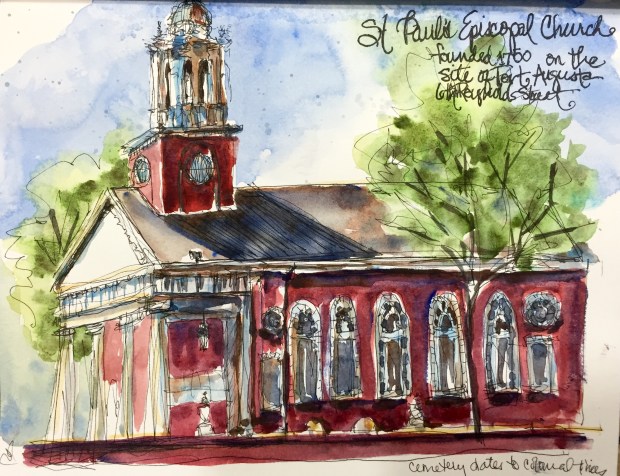 St Paul's Episcopal Church
founded 1750 on the
site of Fort Augusta
6th Reynolds Street
cemetery dates to colonial times